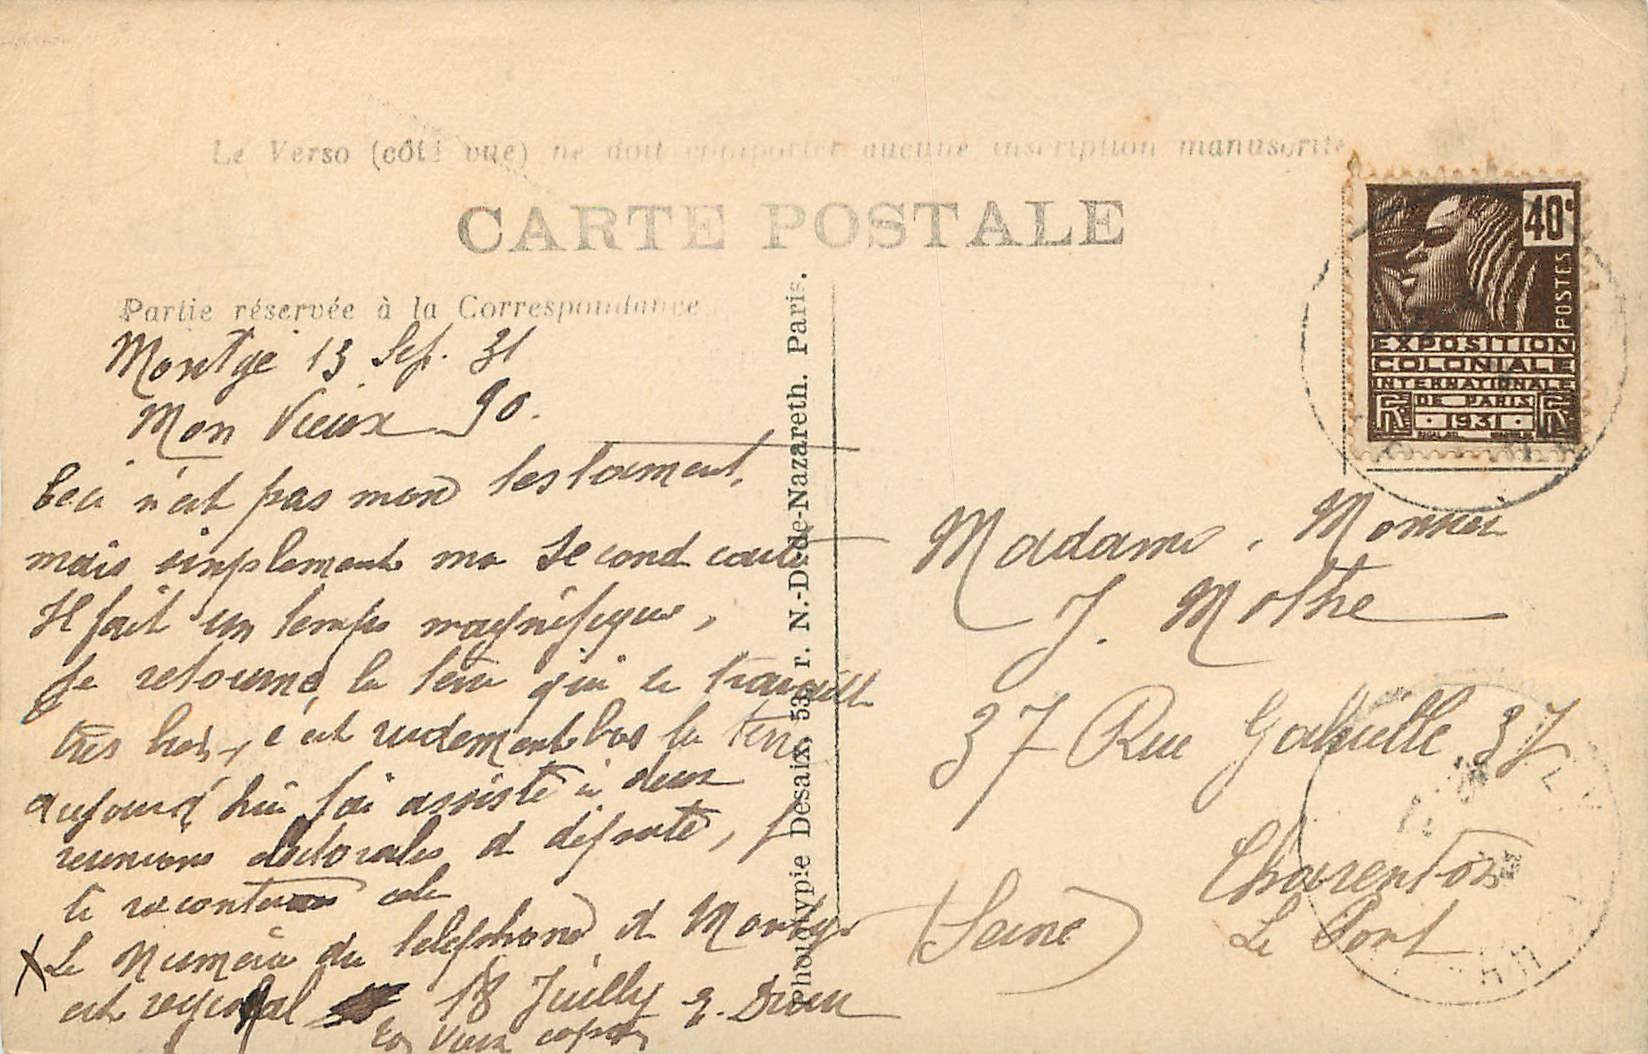 Le Verso (côté vue) ne doit comporter aucune inscription manuscrite
CARTE POSTALE
Partie réservée à la Correspondance
Montgé 13 Sep. 31
Mon Vieux Jo.
Ceci n'est pas mon testament,
mais simplement ma second carte
Il fait un temps magnifique,
Je retourne la terre qui se travaille
très bien, c'est rudement bas la terre
aujourd'hui j'ai assisté à deux
reunions electorales et député, je
te raconterai cela
X Le Numéro du telephone de Montgé
est regional 18 Juilly
Ton Vieux copain
Phototypie Desaix, 53, r. N.-D.-de-Nazareth. Paris.
40c
POSTES
EXPOSITION
COLONIALE
INTERNATIONALE
DE PARIS
1931
RF
Madame Monsieur
J. Mothe
37 Rue Gabrielle 37
Charenton
Le Pont
(Seine)